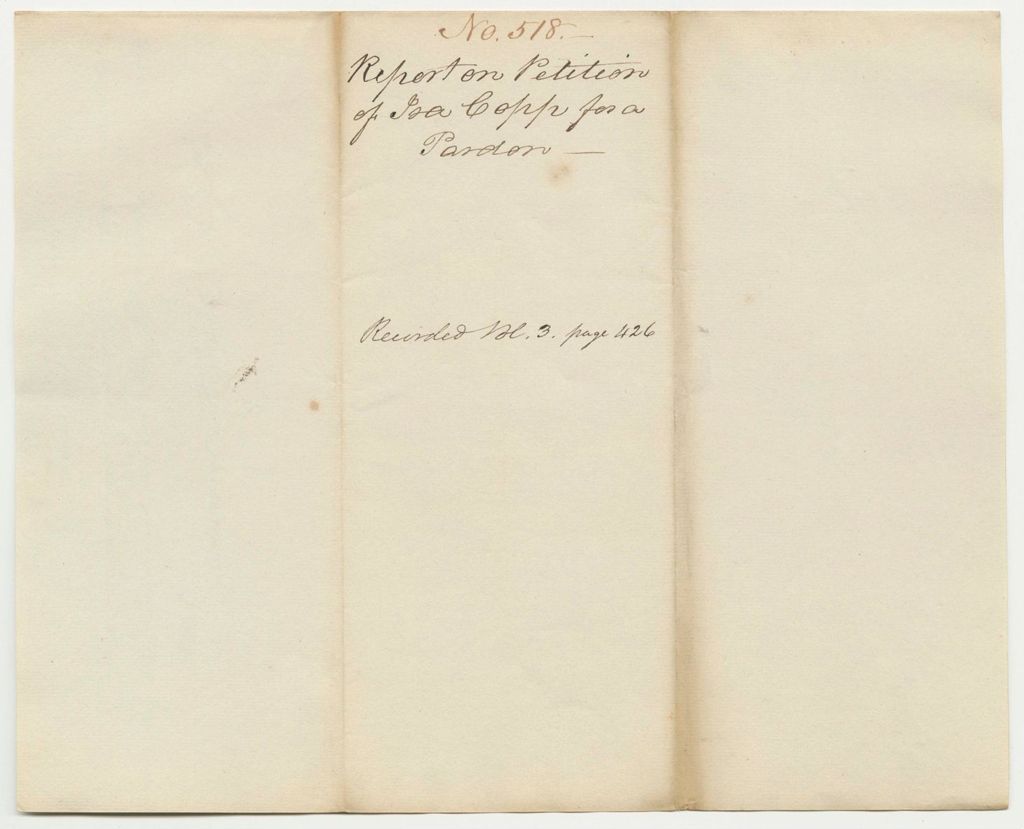 No. 518.—
Report on Petition
of Ira Copp for a
Pardon —
Recorded Vol. 3. page 426